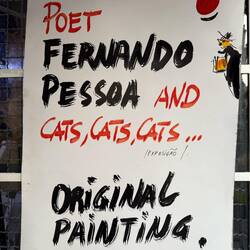 POET
FERNANDO
PESSOA AND
CATS, CATS, CATS...
(EXPOSIÇÃO)
ORIGINAL
PAINTING.